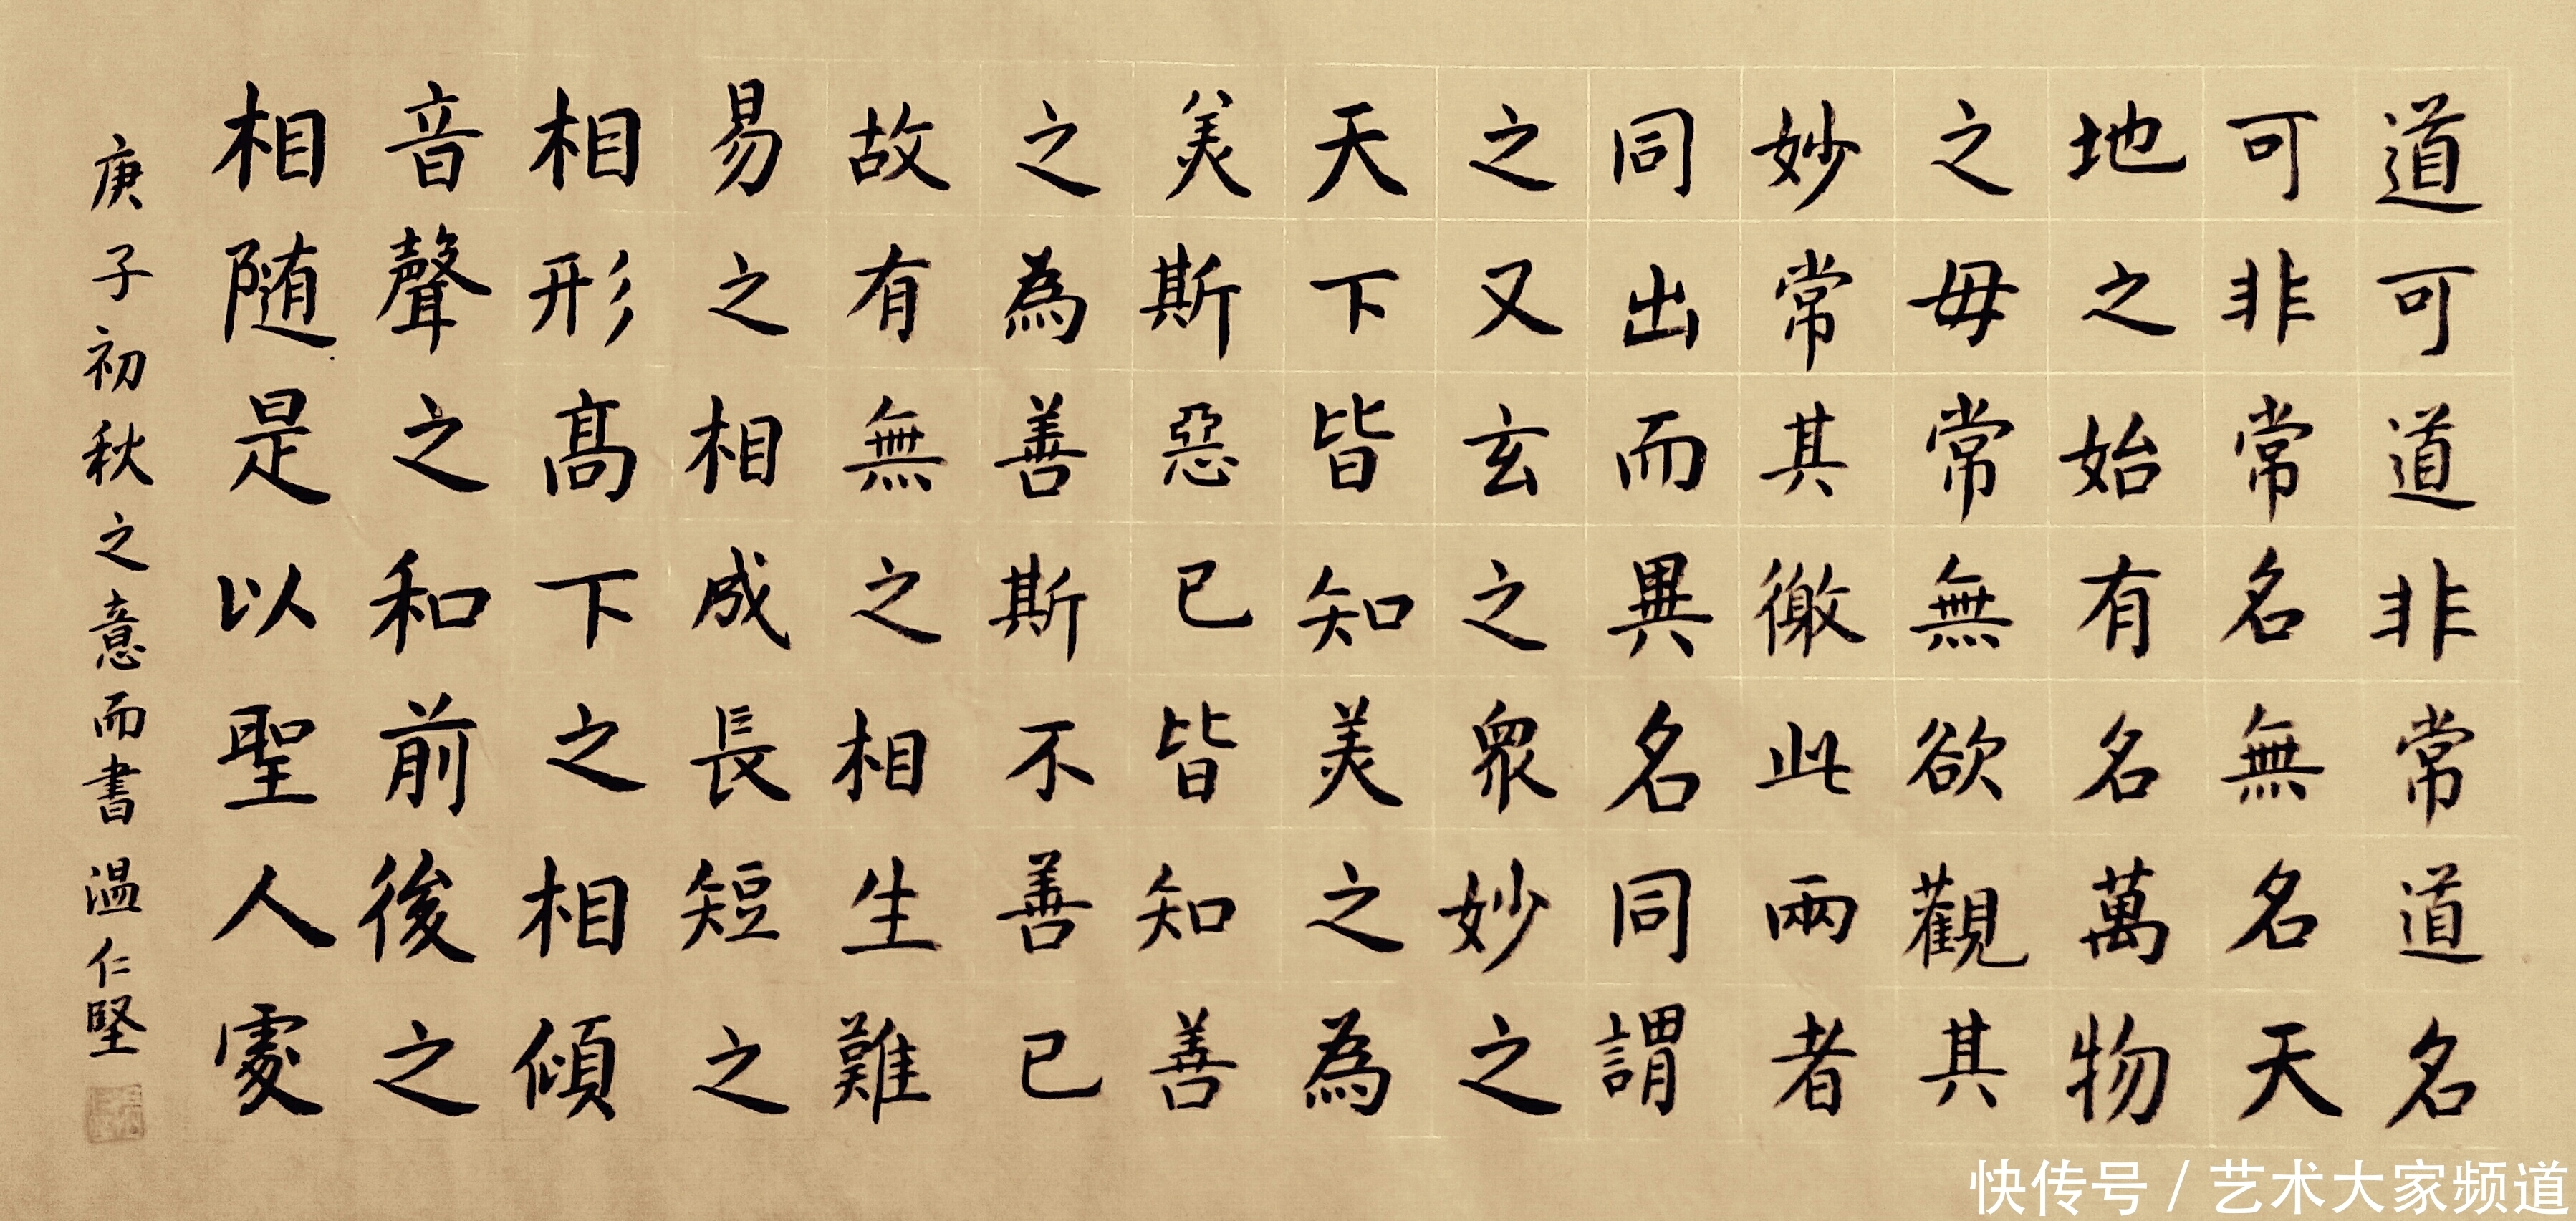 道可道非常道名
可非常名無名天
地之始有名萬物
之毋常無欲觀其
妙常其徼此兩者
同出而異名同謂
之又玄之眾妙之
天下皆知美之為
美斯惡已皆知善
之為善斯不善已
故有無之相生難
易之相成長短之
相形高下之相傾
音聲之和前後之
相随是以聖人處
庚子初秋之意而書温仁堅
快传号/艺术大家频道